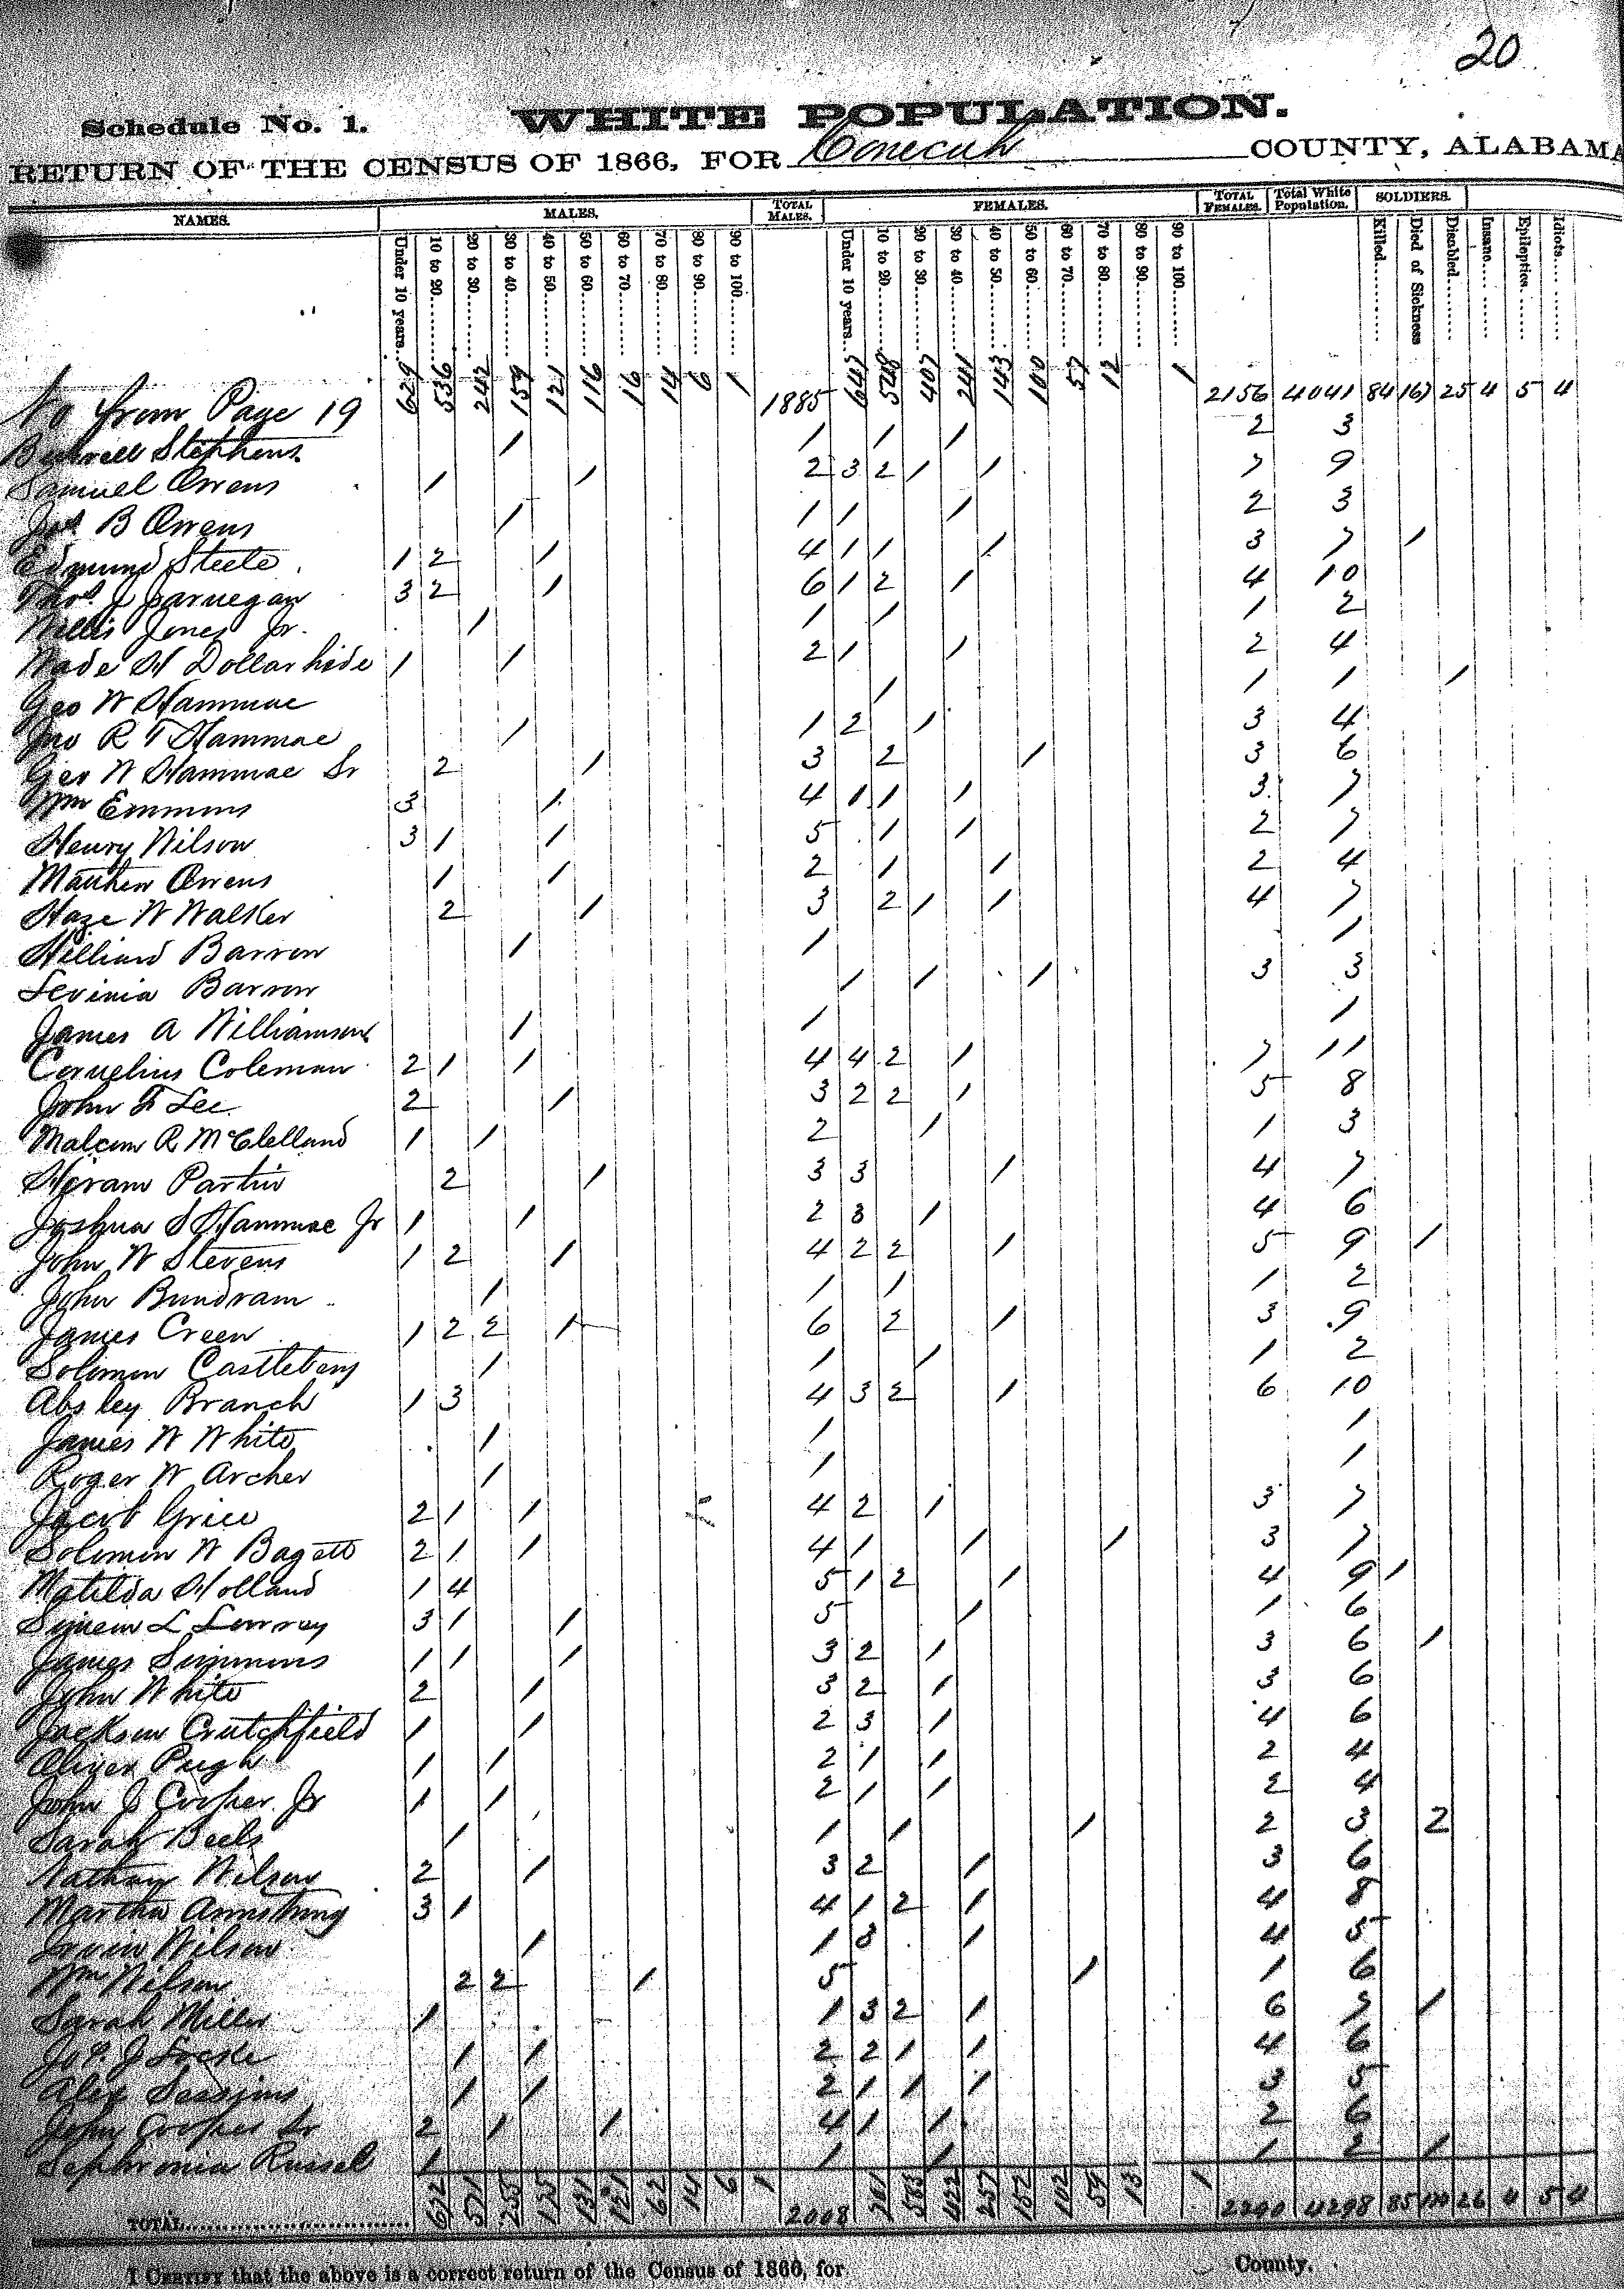 20
Schedule No. 1. WHITE POPULATION.
RETURN OF THE CENSUS OF 1866, FOR Conecuh COUNTY, ALABAMA
NAMES. MALES. TOTAL MALES. FEMALES. TOTAL FEMALES. Total White Population. SOLDIERS.
Under 10 years.. 10 to 20 20 to 30 30 to 40 40 to 50 50 to 60 60 to 70 70 to 80 80 to 90 90 to 100 Under 10 years.. 10 to 20 20 to 30 30 to 40 40 to 50 50 to 60 60 to 70 70 to 80 80 to 90 90 to 100 Killed Died of Sickness Disabled Insane Epileptics Idiots
No from Page 19 629 536 242 159 121 116 16 14 6 1 1885 647 548 407 241 143 100 57 12 1 2156 4041 84 167 25 4 5 4
Stephens 1 1 1 1 2 3
Samuel Owens 1 1 2 3 2 1 1 7 9
Jos. B Owens 1 1 1 1 2 3
Edmund Steele 1 2 1 4 1 1 1 3 7 1
Thos. J Jarnegan 3 2 1 6 1 2 1 4 10
Willis Jones Jr. 1 1 1 1 2
Wade H Dollarhide 1 1 2 1 1 2 4
Geo W Hammac 1 1 1 1
Jno R T Hammac 1 1 2 1 3 4
Geo W Hammac Sr 2 1 3 2 1 3 6
Wm Emmons 3 1 4 1 1 1 3 7
Henry Wilson 3 1 1 5 1 1 2 7
Mathew Owens 1 1 2 1 1 2 4
Haze W Walker 2 1 3 2 1 1 4 7
Hilliard Barrow 1 1 1
Levinia Barrow 1 1 1 3 3
James A Williamson 1 1 1
Cornelius Coleman 2 1 1 4 4 2 1 7 11
John F Lee 2 1 3 2 2 1 5 8
Malcom R McClelland 1 1 2 1 1 3
Hiram Partin 2 1 3 3 1 4 7
Joshua S Hammac Jr 1 1 2 3 1 4 6
John W Stevens 1 2 1 4 2 2 1 5 9 1
John Bundram 1 1 1 1 2
James Creen 1 2 2 1 6 2 1 3 9
Solomon Castlebery 1 1 1 1 2
Absley Branch 1 3 4 3 2 1 6 10
James W White 1 1 1
Roger W Archer 1 1 1
Jacob Grice 2 1 1 4 2 1 3 7
Solomon W Bagett 2 1 1 4 1 1 1 3 7
Matilda Holland 1 4 5 1 2 1 4 9 1
Simeon L Lowrey 3 1 1 5 1 1 6
James Simmons 1 1 1 3 2 1 3 6 1
John White 2 1 3 2 1 3 6
Jackson Crutchfield 1 1 2 3 1 4 6
Oliver Pugh 1 1 2 1 1 2 4
John J Cooper Jr 1 1 2 1 1 2 4
Sarah Beels 1 1 1 1 2 3 2
Nathan Wilson 2 1 3 2 1 3 6
Martha Armstrong 3 1 4 1 2 1 4 8
Irvin Wilson 1 1 3 1 4 5
Wm Wilson 2 2 1 5 1 1 6
Sarah Miller 1 1 3 2 1 6 7 1
Jos. J Locke 1 1 2 2 1 1 4 6
Alex Sessions 1 1 2 1 1 1 3 5
John Cooper Sr 2 1 1 4 1 1 2 6
Sephronia Russel 1 1 1 1 2 1
TOTAL 672 571 255 175 131 121 62 14 6 1 2008 583 422 257 152 102 59 13 1 2290 4298 85 26 4 5 4
I CERTIFY that the above is a correct return of the Census of 1866, for County.